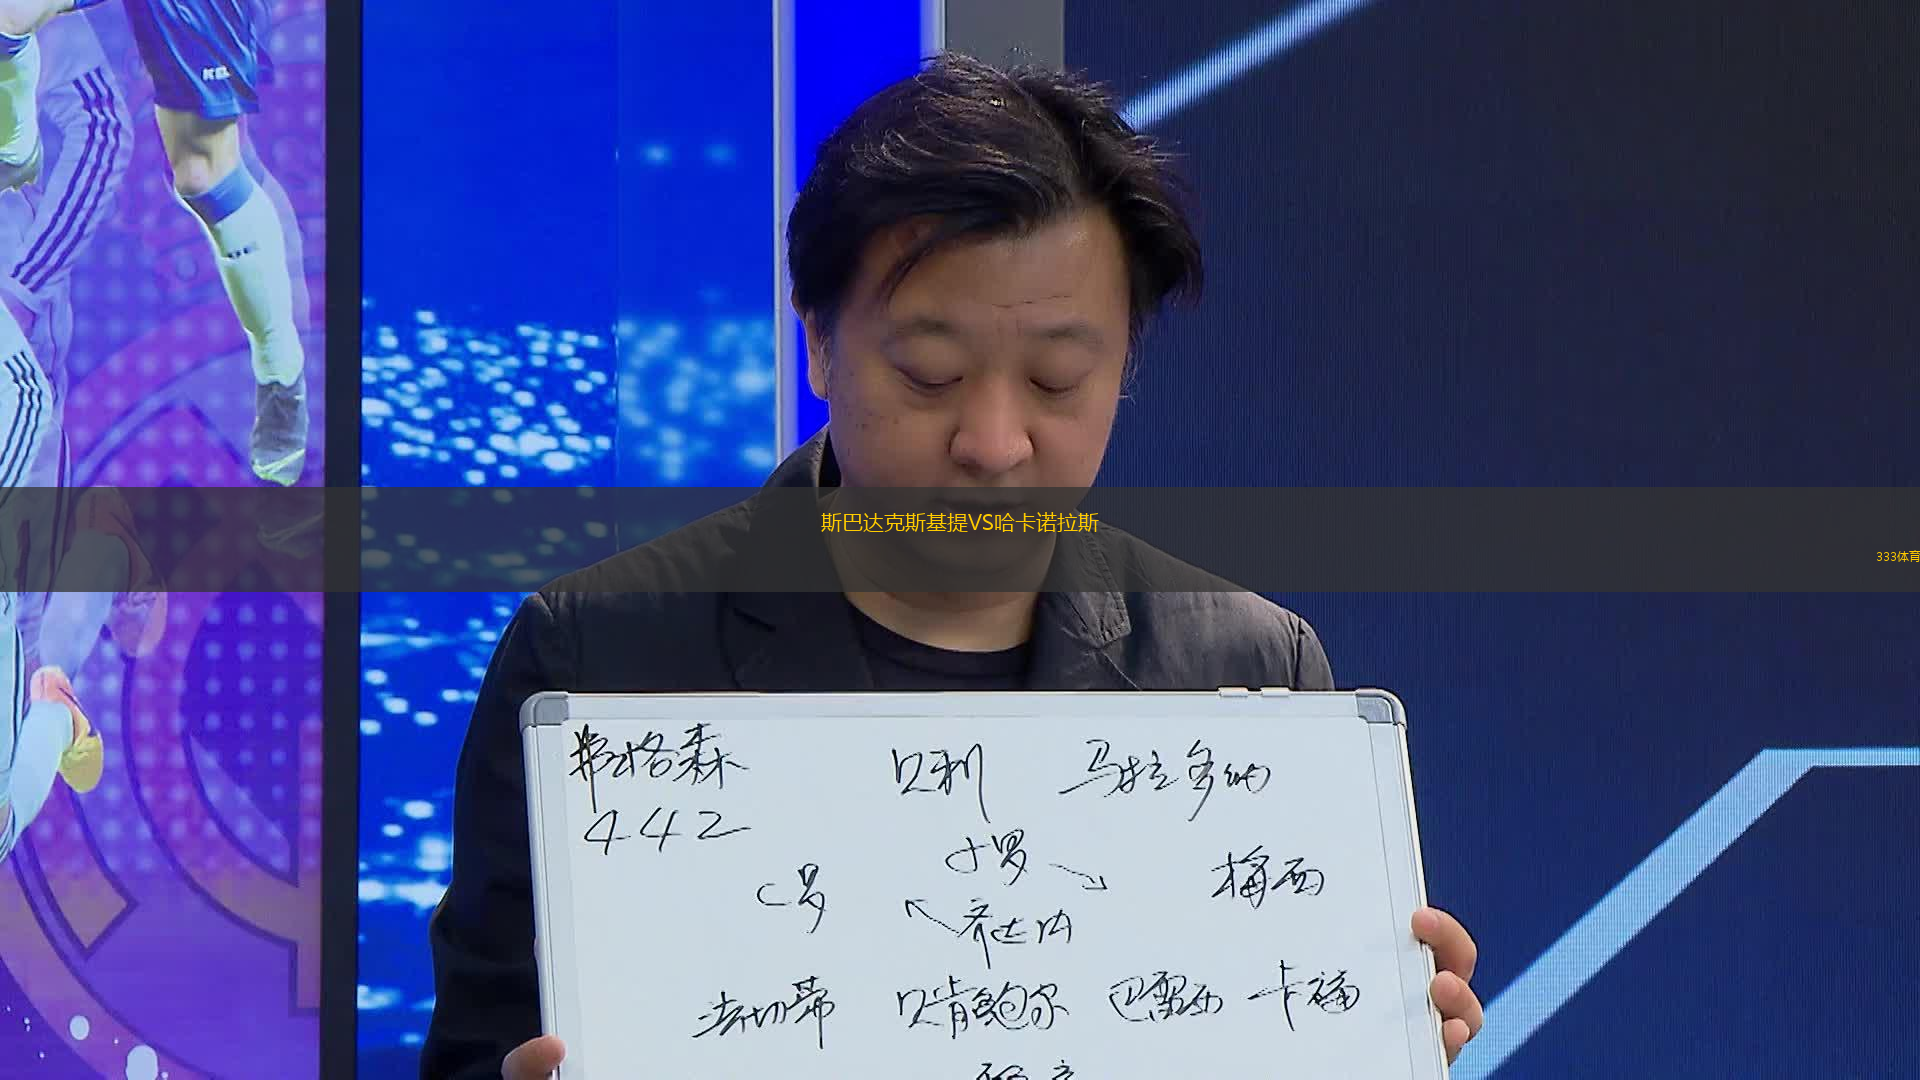 KEL
斯巴达克斯基提VS哈卡诺拉斯
333体育
弗格森 贝利 马拉多纳
442
小罗
C罗 梅西
齐达内
法切蒂 贝肯鲍尔 巴雷西 卡福